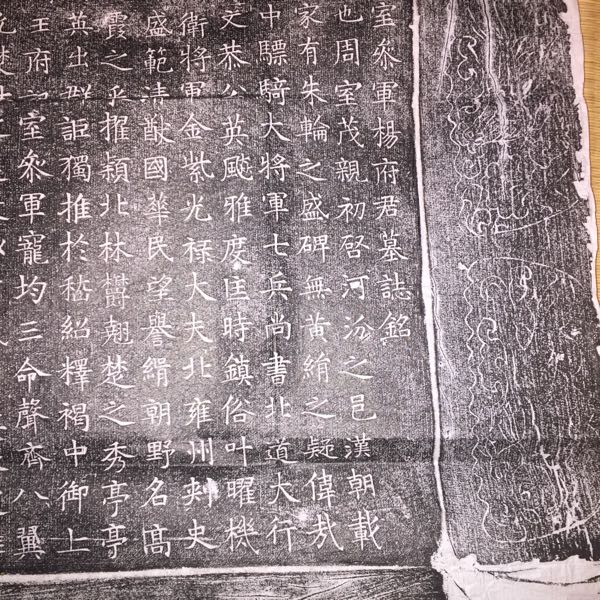 室叅軍楊府君墓誌銘
也周室茂親初啓河汾之邑漢朝載
家有朱輪之盛碑無黃絹之疑偉哉
中驃騎大將軍七兵尚書北道大行
文恭公英飈雅度匡時鎮俗叶曜機
衛將軍金紫光祿大夫北雍州刺史
盛範清猷國華民望譽緝朝野名高
霞之 擢穎北林欝翹楚之秀亭亭
英出群詎獨推於嵇紹釋褐中御上
王府 室叅軍寵均三命聲齊八翼